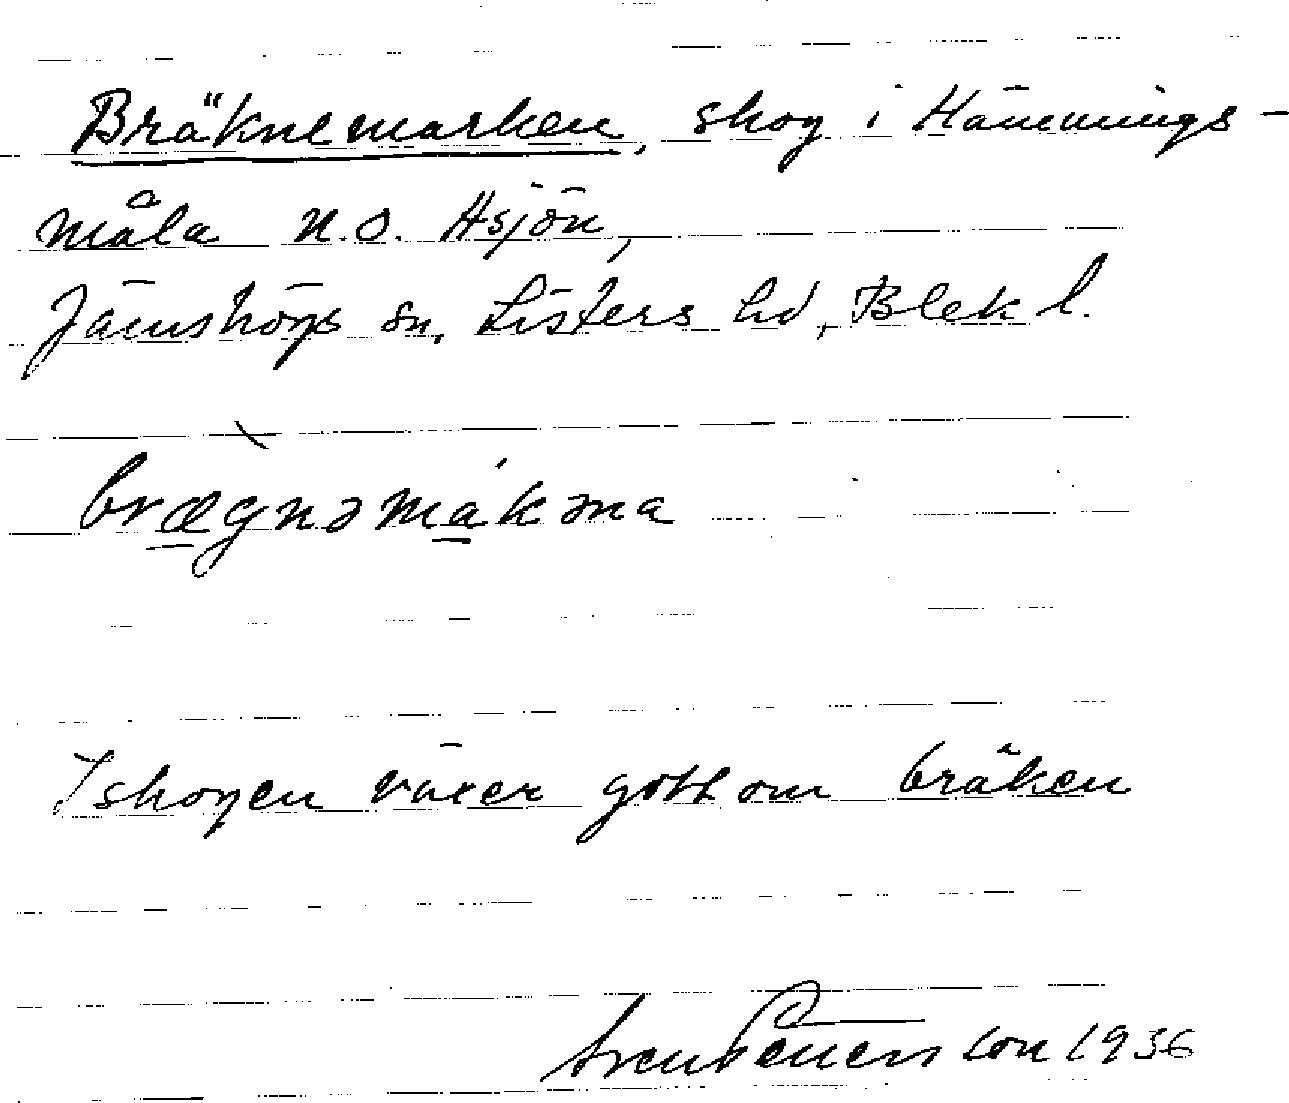 Bräknemarken, skog i Hämmings-
måla n.o. Hsjön,
Jämshögs sn, Listers hd, Blek l.
brægnəmákəna
I skogen växer gott om bräken
1936